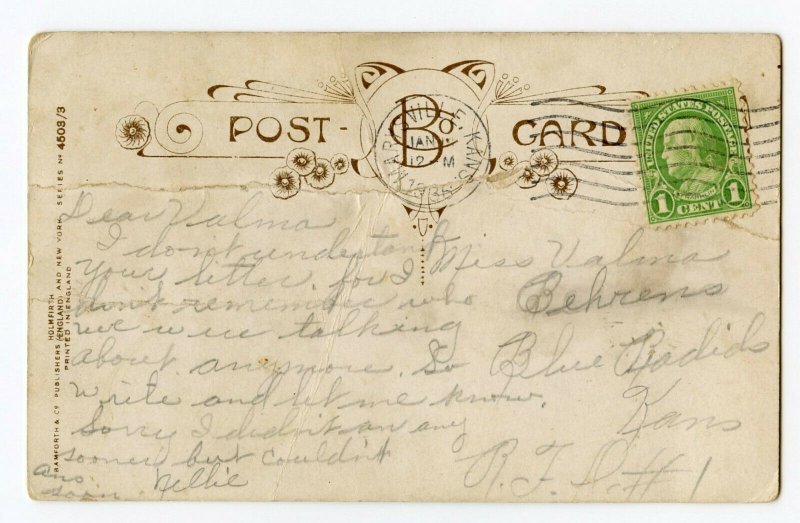 POST- B Co CARD
UNITED STATES POSTAGE
1 CENT 1
VILLE, KANS
JAN
12 M
SERIES Nº 4503/3
HOLMFIRTH (ENGLAND) AND NEW YORK
BAMFORTH & Cº PUBLISHERS
PRINTED IN ENGLAND
Dear Valma
I don't understand
your letter. for I
don't remember who
we were talking
about anymore. So
write and let me know.
Sorry I didn't an any
sooner but couldn't
Nellie
ans
soon
Miss Valma
Behrens
Blue Radids
Kans
R. F. D. #1